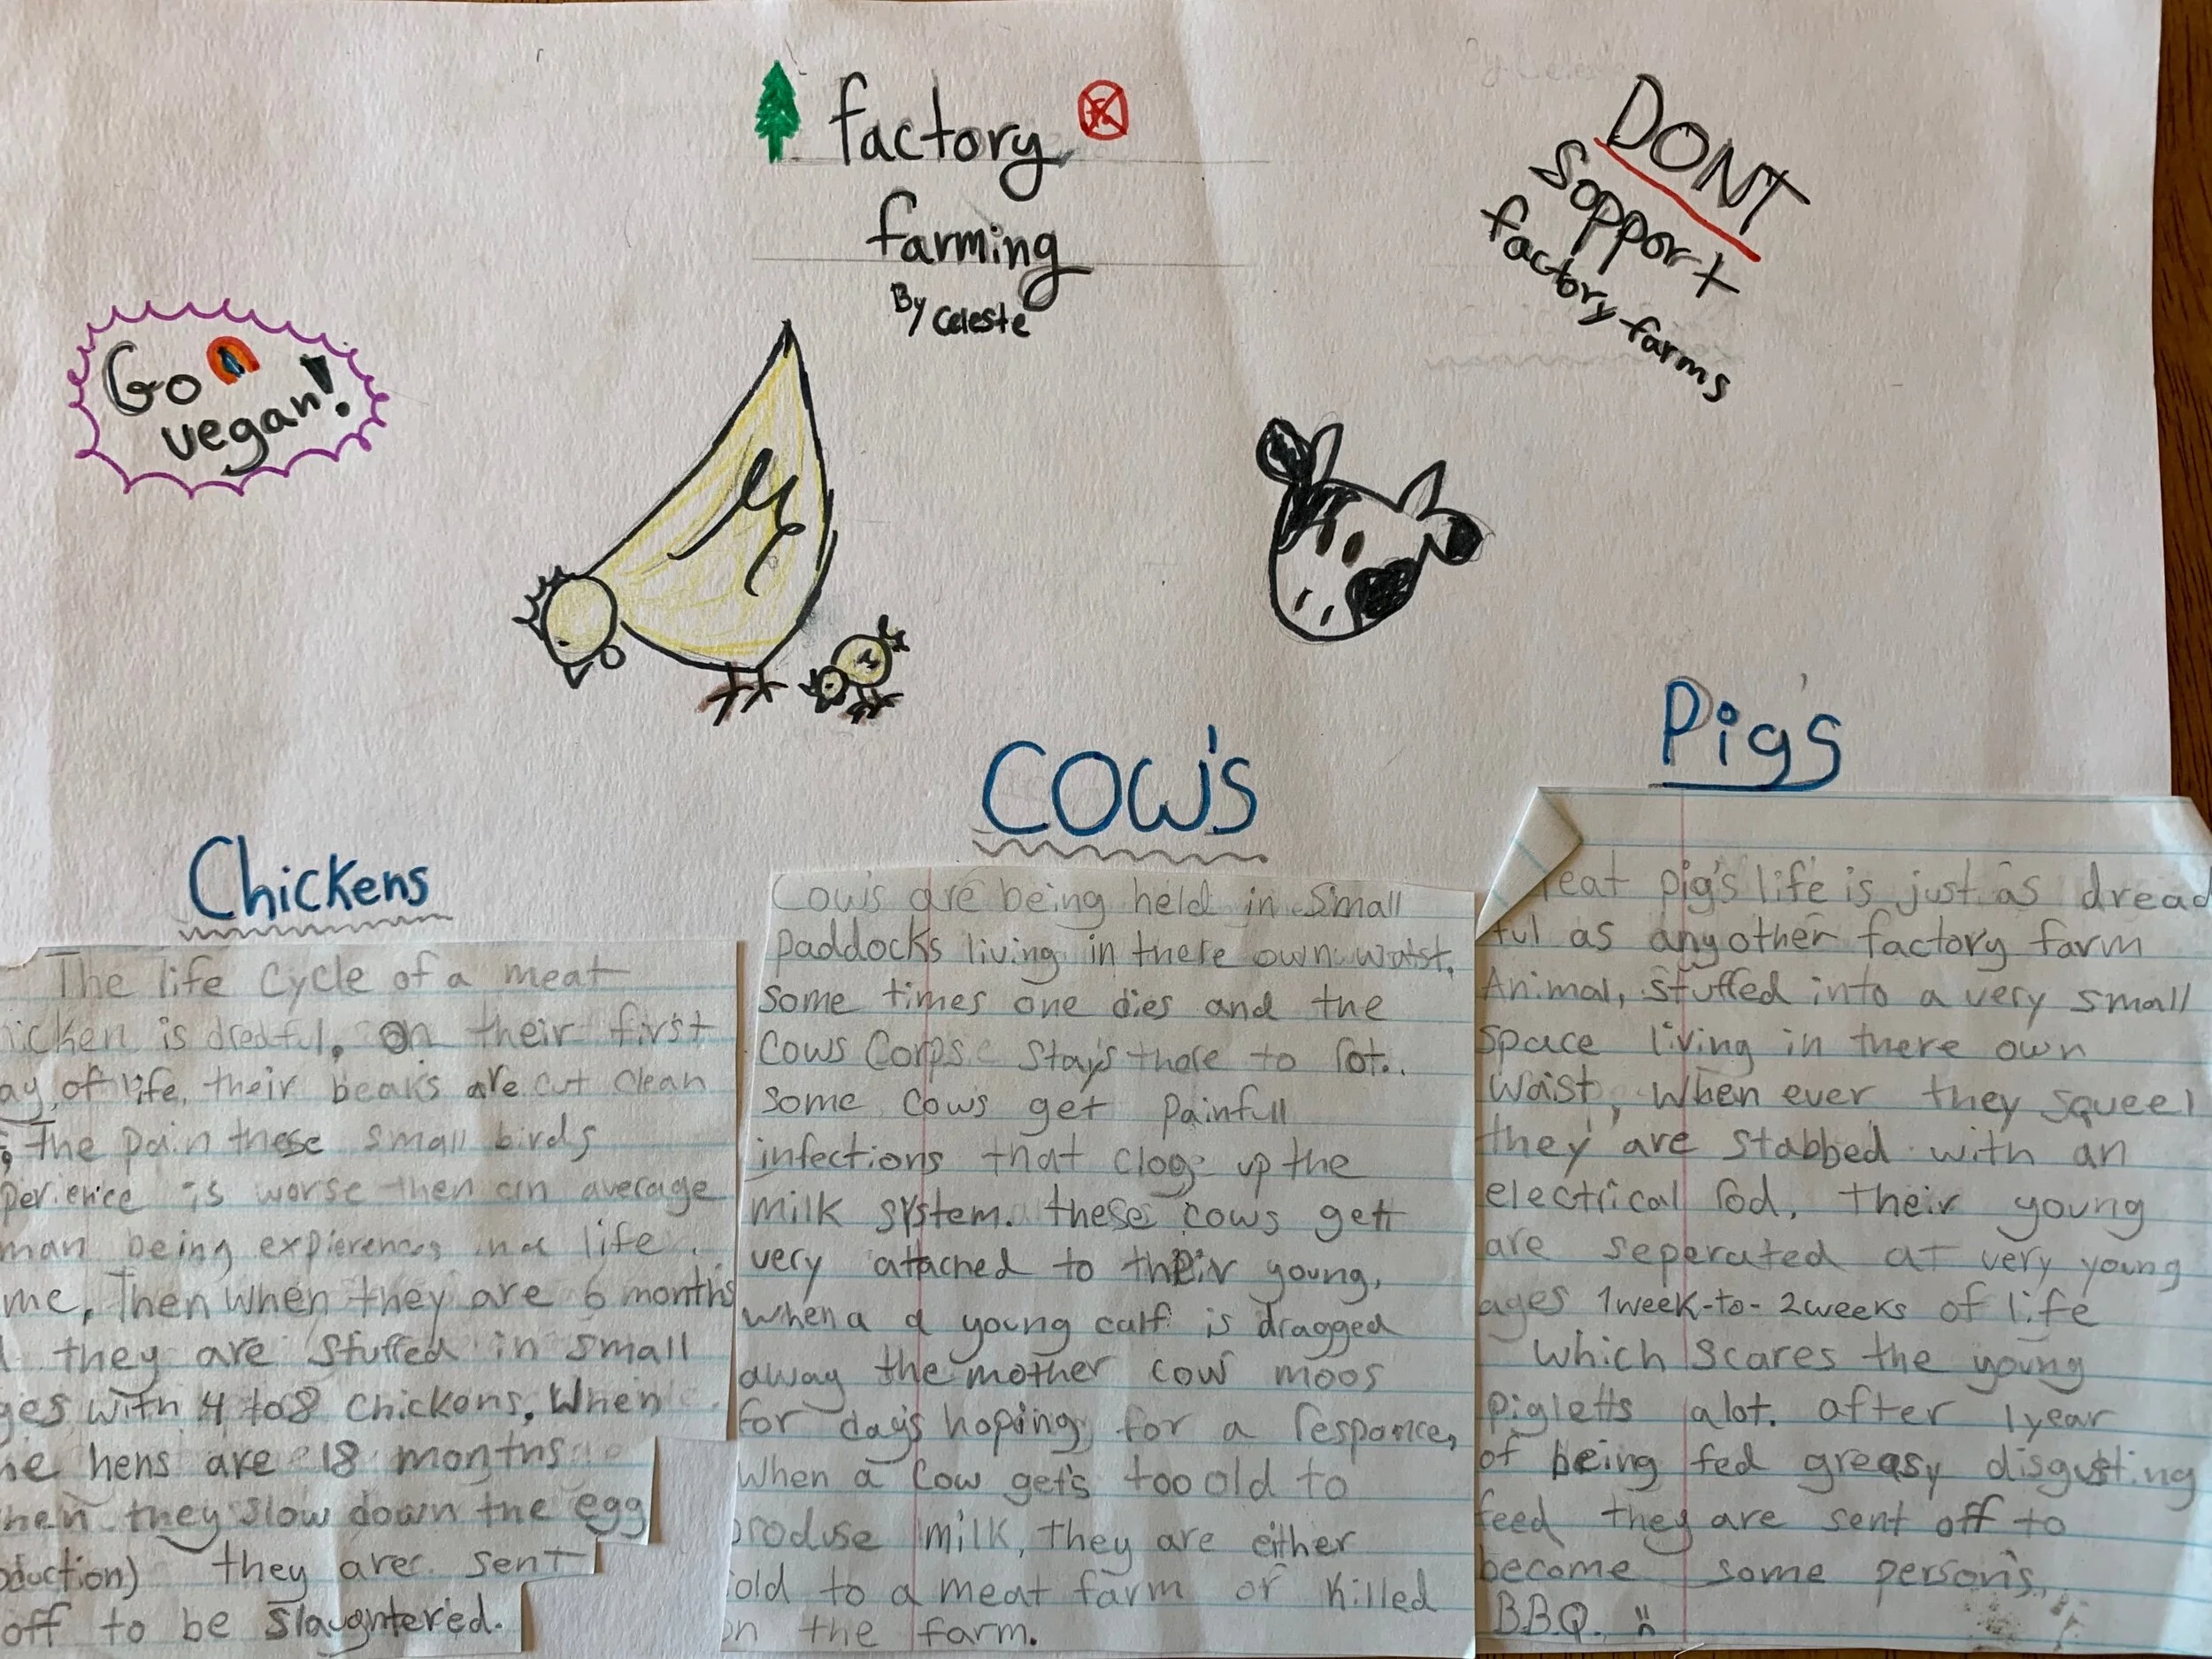 factory
farming
By Celeste
DONT
sopport
factory farms
Go
vegan!
Chickens
The life Cycle of a meat
icken is dredful. On their first
ay of life, their beaks are cut clean
the pain these small birds
perience is worse then an average
man being expierences in a life
me, Then when they are 6 months
they are stuffed in small
ges with 4 to 8 chickens, When
he hens are 18 months
hen they slow down the egg
oduction) they are sent
off to be slaughtered.
COW'S
Cow's are being held in small
paddocks living in there own watst,
some times one dies and the
Cows Corpse stays there to rot..
some cows get painfull
infections that clog up the
milk system. these cows gett
very attached to their young,
when a a young calf is dragged
away the mother cow moos
for day's hoping for a responce,
When a cow get's too old to
produse milk, they are either
old to a meat farm or killed
on the farm.
Pig's
eat pig's life is just as dread
ful as anyother factory farm
Animal, stuffed into a very small
space living in there own
waist, when ever they squeel
they are stabbed with an
electrical rod, their young
are seperated at very young
ages 1week-to-2weeks of life
which scares the young
pigletts alot. after 1year
of being fed greasy disgusting
feed they are sent off to
become some person's
B.B.Q.